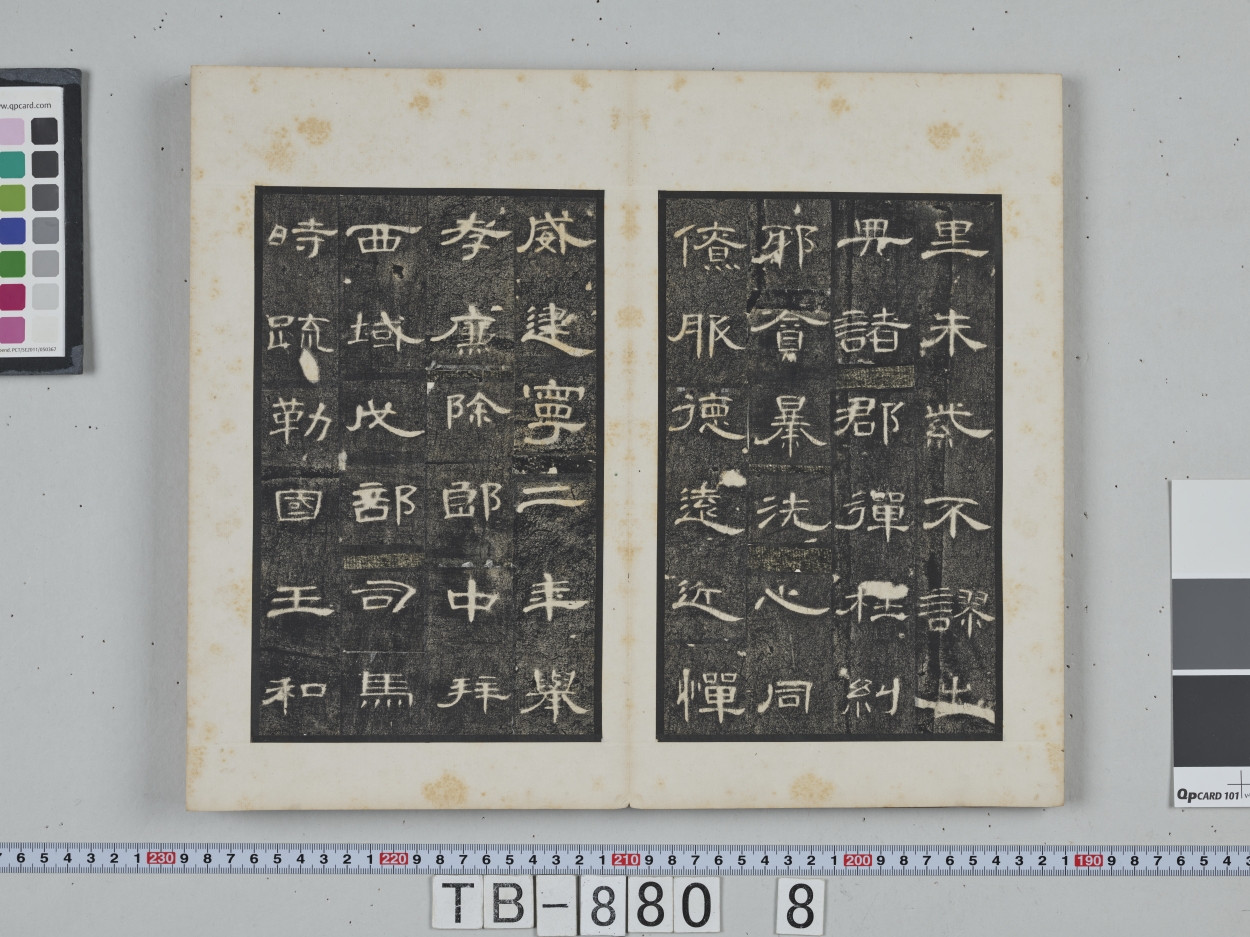 里朱紫不謬出
典諸郡彈枉糾
邪貪暴洗心同
僚服德遠近憚
威建寧二年舉
孝廉除郎中拜
西域戊部司馬
時疏勒國王和
w.qpcard.com
QPCARD 101
6 5 4 3 2 1 230 9 8 7 6 5 4 3 2 1 220 9 8 7 6 5 4 3 2 1 210 9 8 7 6 5 4 3 2 1 200 9 8 7 6 5 4 3 2 1 190 9 8 7 6 5 4 3
TB-880 8